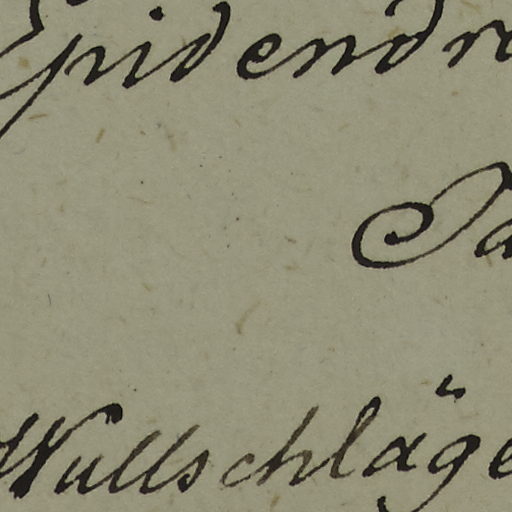 Epidendr
Ja
Wullschläge